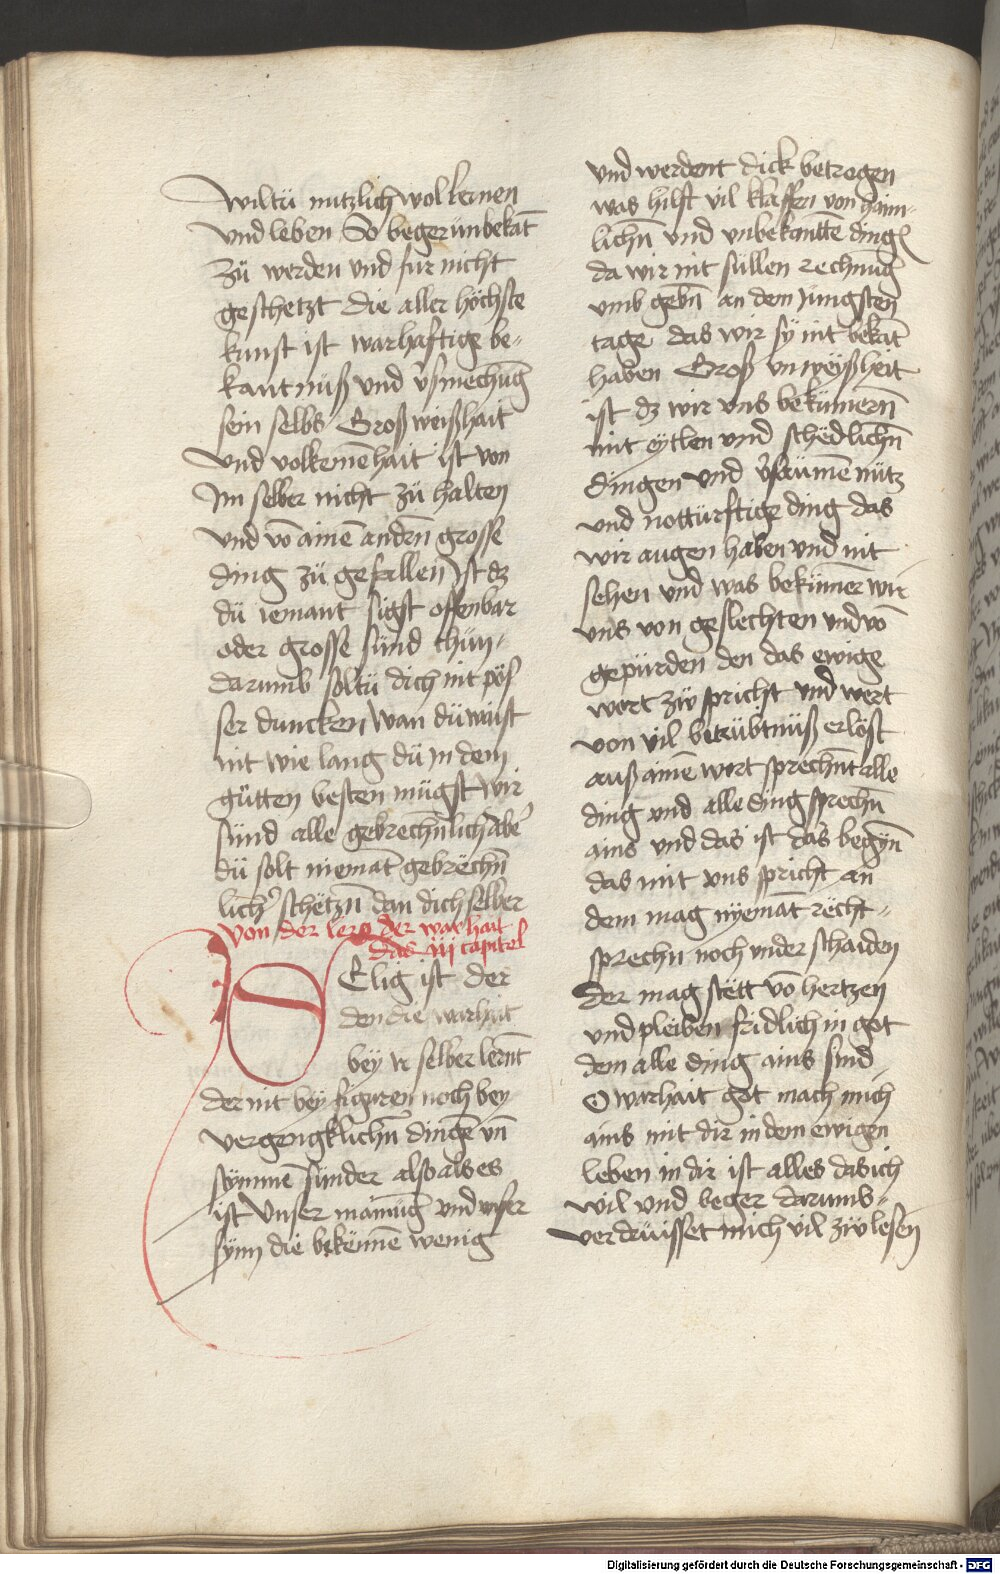 wiltu nutzlich wol lernen
vnd leben So beger vnbekāt
zů werden vnd fur nicht
geschetzt die aller höchste
kunst ist warhaftige be-
kantnüß vnd v̄smechūg
sein selbs Groß weißhait
vnd volkomēhait ist von
Im selber nicht zů halten
vnd vō ainē andrn̄ grosse
ding zů gefallen Ist dz
dü iemant sigst offenbar
oder grosse sünd thün-
darumb soltu dich nit pös
ser duncken Wan dü waist
nit wie lang dü in dem
gütten besten mügst wir
sünd alle gebrechn̄lich abē
dü solt niemāt gebrëchn̄
lichˀ schëtzn̄ dan dich selber
Von der lere der warhait
das iij capitel
Selig ist der
den die warhait
bey ir selber lernt̄
der nit bey figuren noch bey
vergengklichn̄ dingē vn̄
stymmē sünder also als es
ist Vnser mainūg vnd vnser
synn die bekennē wenig
vnd werdent dick betrogen
was hilft vil klaffen von haim-
lichn̄ vnd vnbekantē ding
da wir nit süllen rechnūg
vmb gebn̄ an dem Jüngsten
tage das wir sy nit bekāt
haben Groß vnweyßheit
ist dz wir vns bekümern̄
mit eytlen vnd schëdlichn̄
dingen vnd v̄saümē nütz
vnd notturftige ding das
wir augen haben vnd nit
sehen vnd was bekümēr wir
vns von geslechten vnd vō
gepürden den das ewige
wort zů spricht vnd wert
von vil betrübtnüß erlöst
auß ainē wort sprechn̄t alle
ding vnd alle ding sprechn̄
ains vnd das ist das begyn̄
das mit vns spricht an
dem mag nyemāt rëcht-
sprechn̄ noch vnderschaiden
der mag stëtt vō hertzen
vnd pleiben fridlich in got
dem alle ding ains sind
O warhait got mach mich
ains mit dir in dem ewigen
leben in dir ist alles das ich
wil vnd beger darumb-
verdrüisset mich vil zů lesen
Digitalisierung gefördert durch die Deutsche Forschungsgemeinschaft - DFG